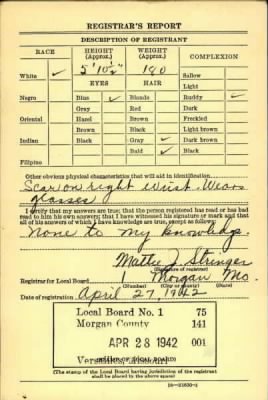 REGISTRAR'S REPORT
DESCRIPTION OF REGISTRANT
RACE HEIGHT (Approx.) WEIGHT (Approx.) COMPLEXION
White ✓ 5'10½" 180 Sallow
EYES HAIR Light
Negro Blue ✓ Blonde Ruddy ✓
Gray Red Dark
Oriental Hazel Brown Freckled
Brown Black Light brown
Indian Black Gray ✓ Dark brown
Bald ✓ Black
Filipino
Other obvious physical characteristics that will aid in identification
Scar on right wrist. Wears
glasses
I certify that my answers are true; that the person registered has read or has had
read to him his own answers; that I have witnessed his signature or mark and that
all of his answers of which I have knowledge are true, except as follows:
None to my knowledge.
Mattie J. Stringer
(Signature of registrar)
Registrar for Local Board 1 Morgan Mo.
(Number) (City or county) (State)
Date of registration April 27, 1942
Local Board No. 1 75
Morgan County 141
APR 28 1942 001
Versailles, Missouri
(STAMP OF LOCAL BOARD)
(The stamp of the Local Board having jurisdiction of the registrant
shall be placed in the above space)